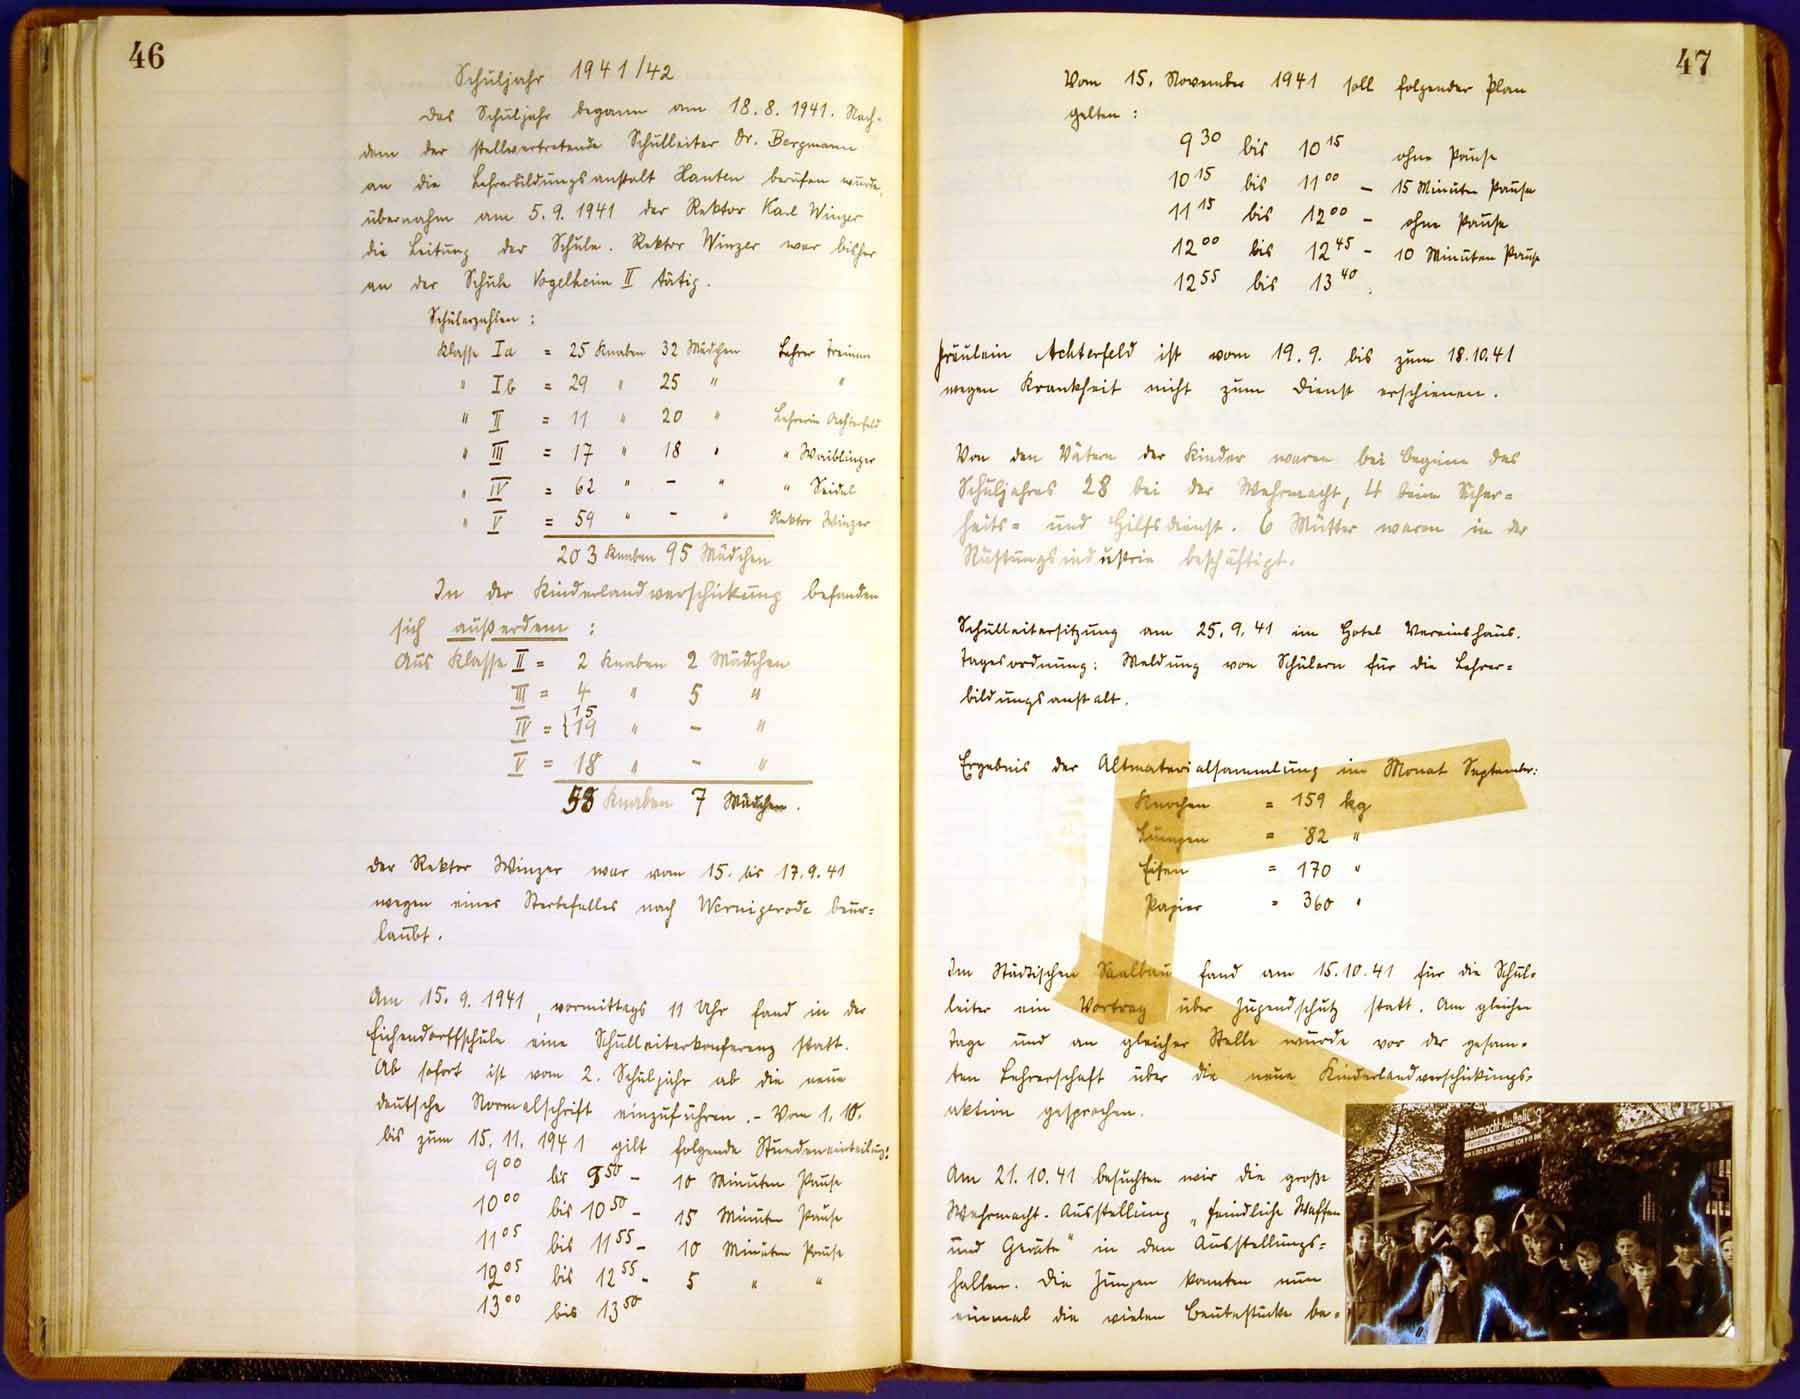 46
Schuljahr 1941/42
Das Schuljahr begann am 18.8.1941. Nach-
dem der stellvertretende Schulleiter Dr. Bergmann
an die Lehrerbildungsanstalt Xanten berufen wurde,
übernahm am 5.9.1941 der Rektor Karl Winzer
die Leitung der Schule. Rektor Winzer war bisher
an der Schule Vogelheim II tätig.
Schülerzahlen:
Klasse Ia = 25 Knaben 32 Mädchen Lehrer
" Ib = 29 " 25 " "
" II = 11 " 20 " Lehrerin Achterfeld
" III = 17 " 18 " " Waiblinger
" IV = 62 " - " " Seidel
" V = 59 " - " Rektor Winzer
203 Knaben 95 Mädchen
In der Kinderlandverschickung befanden
sich außerdem:
Aus Klasse II = 2 Knaben 2 Mädchen
III = 4 " 5 "
15
IV = {19 " - "
V = 18 " - "
Knaben 7 Mädchen.
Der Rektor Winzer war vom 15. bis 17.9.41
wegen eines Sterbefalles nach Wernigerode beur=
laubt.
Am 15.9.1941, vormittags 11 Uhr fand in der
Eichendorffschule eine Schulleiterkonferenz statt.
Ab sofort ist vom 2. Schuljahr ab die neue
deutsche Normalschrift einzuführen. - Vom 1.10.
bis zum 15.11.1941 gilt folgende Stundeneinteilung:
9 00 bis 9 50 - 10 Minuten Pause
10 00 bis 10 50 - 15 Minuten Pause
11 05 bis 11 55 - 10 Minuten Pause
12 05 bis 12 55 - 5 " "
13 00 bis 13 50
47
Vom 15. November 1941 soll folgender Plan
gelten:
9 30 bis 10 15 ohne Pause
10 15 bis 11 00 - 15 Minuten Pause
11 15 bis 12 00 - ohne Pause
12 00 bis 12 45 - 10 Minuten Pause
12 55 bis 13 40.
Fräulein Achterfeld ist vom 19.9. bis zum 18.10.41
wegen Krankheit nicht zum Dienst erschienen.
Von den Vätern der Kinder waren bei Beginn des
Schuljahres 28 bei der Wehrmacht, 4 beim Sicher=
heits= und Hilfsdienst. 6 Mütter waren in der
Rüstungsindustrie beschäftigt.
Schulleitersitzung am 25.9.41 im Hotel Vereinshaus.
Tagesordnung: Meldung von Schülern für die Lehrer=
bildungsanstalt.
Ergebnis der Altmaterialsammlung im Monat September:
Knochen = 159 kg
Lumpen = 82 "
Eisen = 170 "
Papier = 360 "
Im Städtischen Saalbau fand am 15.10.41 für die Schul-
leiter ein Vortrag über Jugendschutz statt. Am gleichen
Tage und an gleicher Stelle wurde vor der gesam-
ten Lehrerschaft über die neue Kinderlandverschickungs-
aktion gesprochen.
Am 21.10.41 besuchten wir die große
Wehrmacht-Ausstellung "Feindliche Waffen
und Geräte" in den Ausstellungs=
hallen. Die Jungen konnten nun
einmal die vielen Beutestücke be-
Wehrmacht-Ausstellung